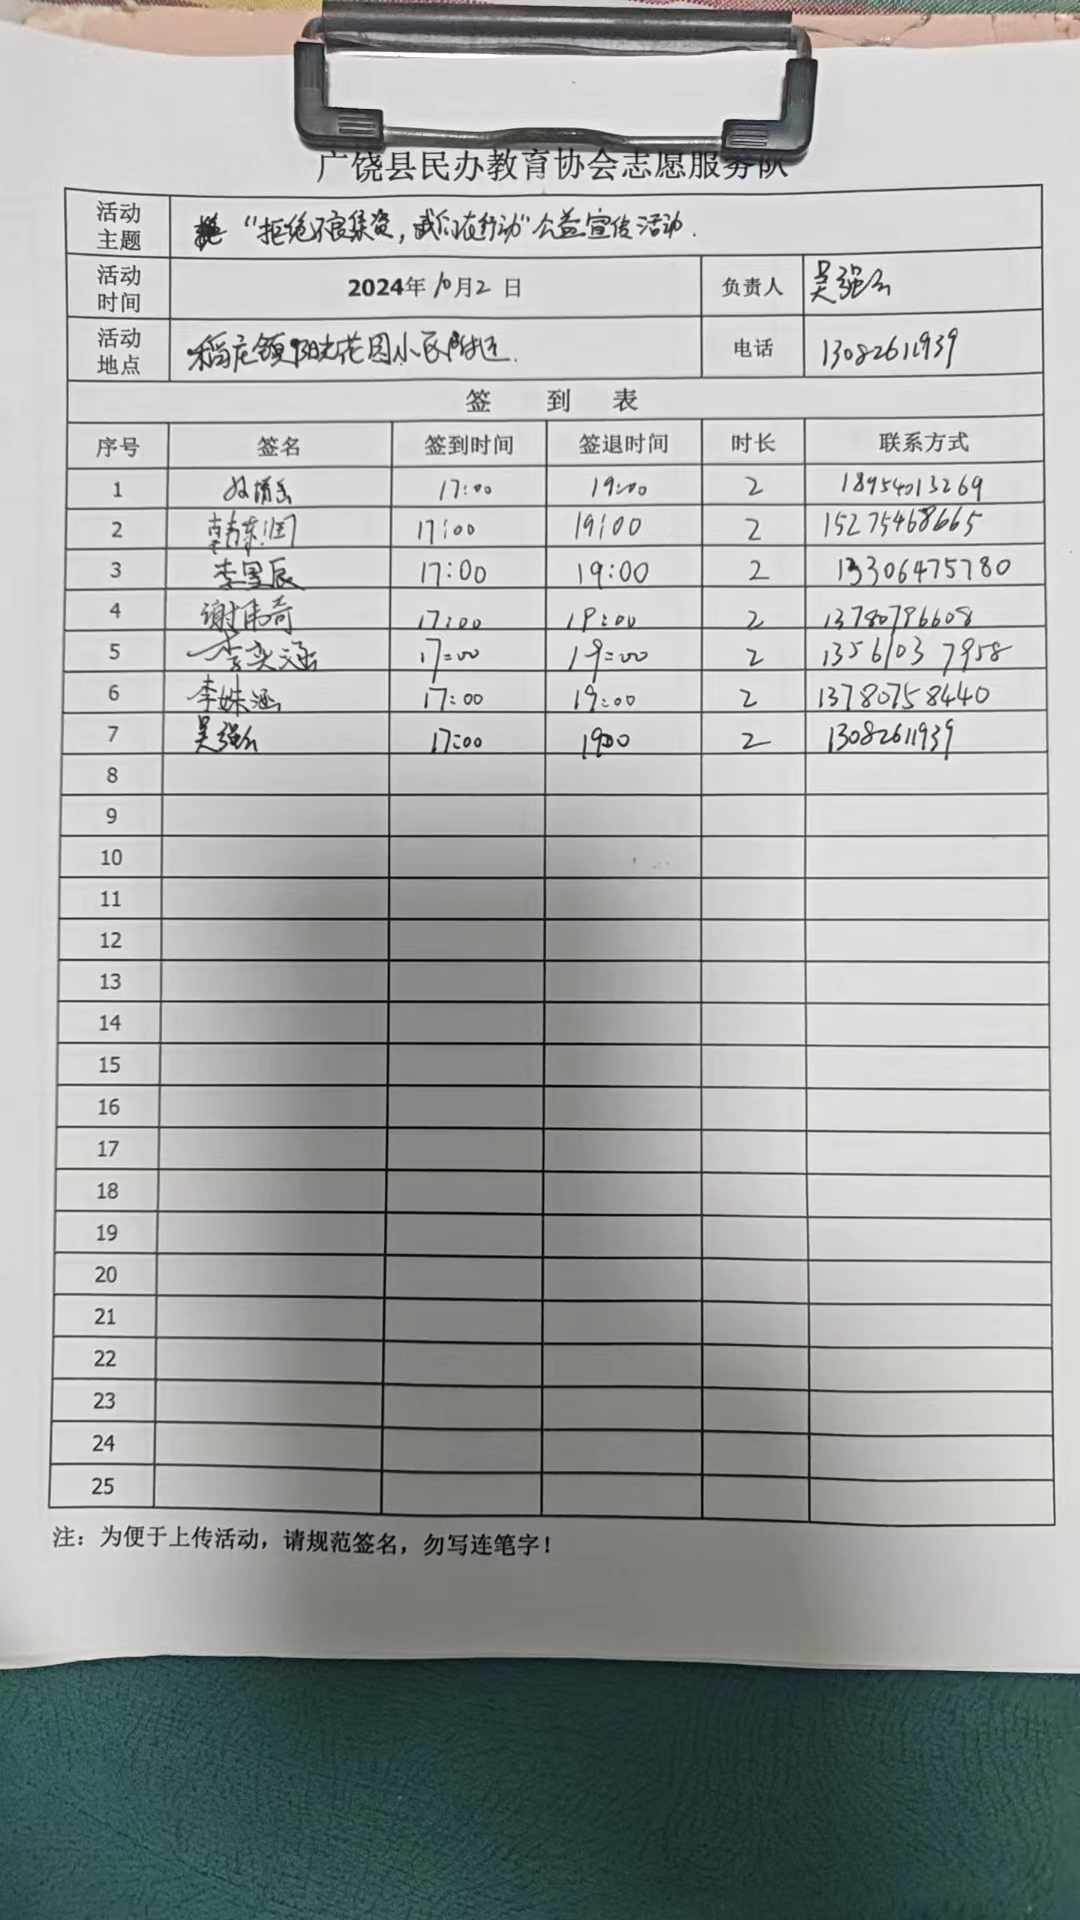 广饶县民办教育协会志愿服务队
活动主题 "拒绝不良集资，我们在行动"公益宣传活动.
活动时间 2024年10月2日 负责人 吴强
活动地点 稻庄镇阳光花园小区附近. 电话 13082611939
签到表
序号 签名 签到时间 签退时间 时长 联系方式
1 17:00 19:00 2 18954013269
2 韩东润 17:00 19:00 2 15275468665
3 李昱辰 17:00 19:00 2 13306475780
4 谢伟奇 17:00 19:00 2 13780796608
5 李奕涵 17:00 19:00 2 13561037958
6 李姝涵 17:00 19:00 2 13780758440
7 吴强 17:00 1900 2 13082611939
8
9
10
11
12
13
14
15
16
17
18
19
20
21
22
23
24
25
注：为便于上传活动，请规范签名，勿写连笔字！